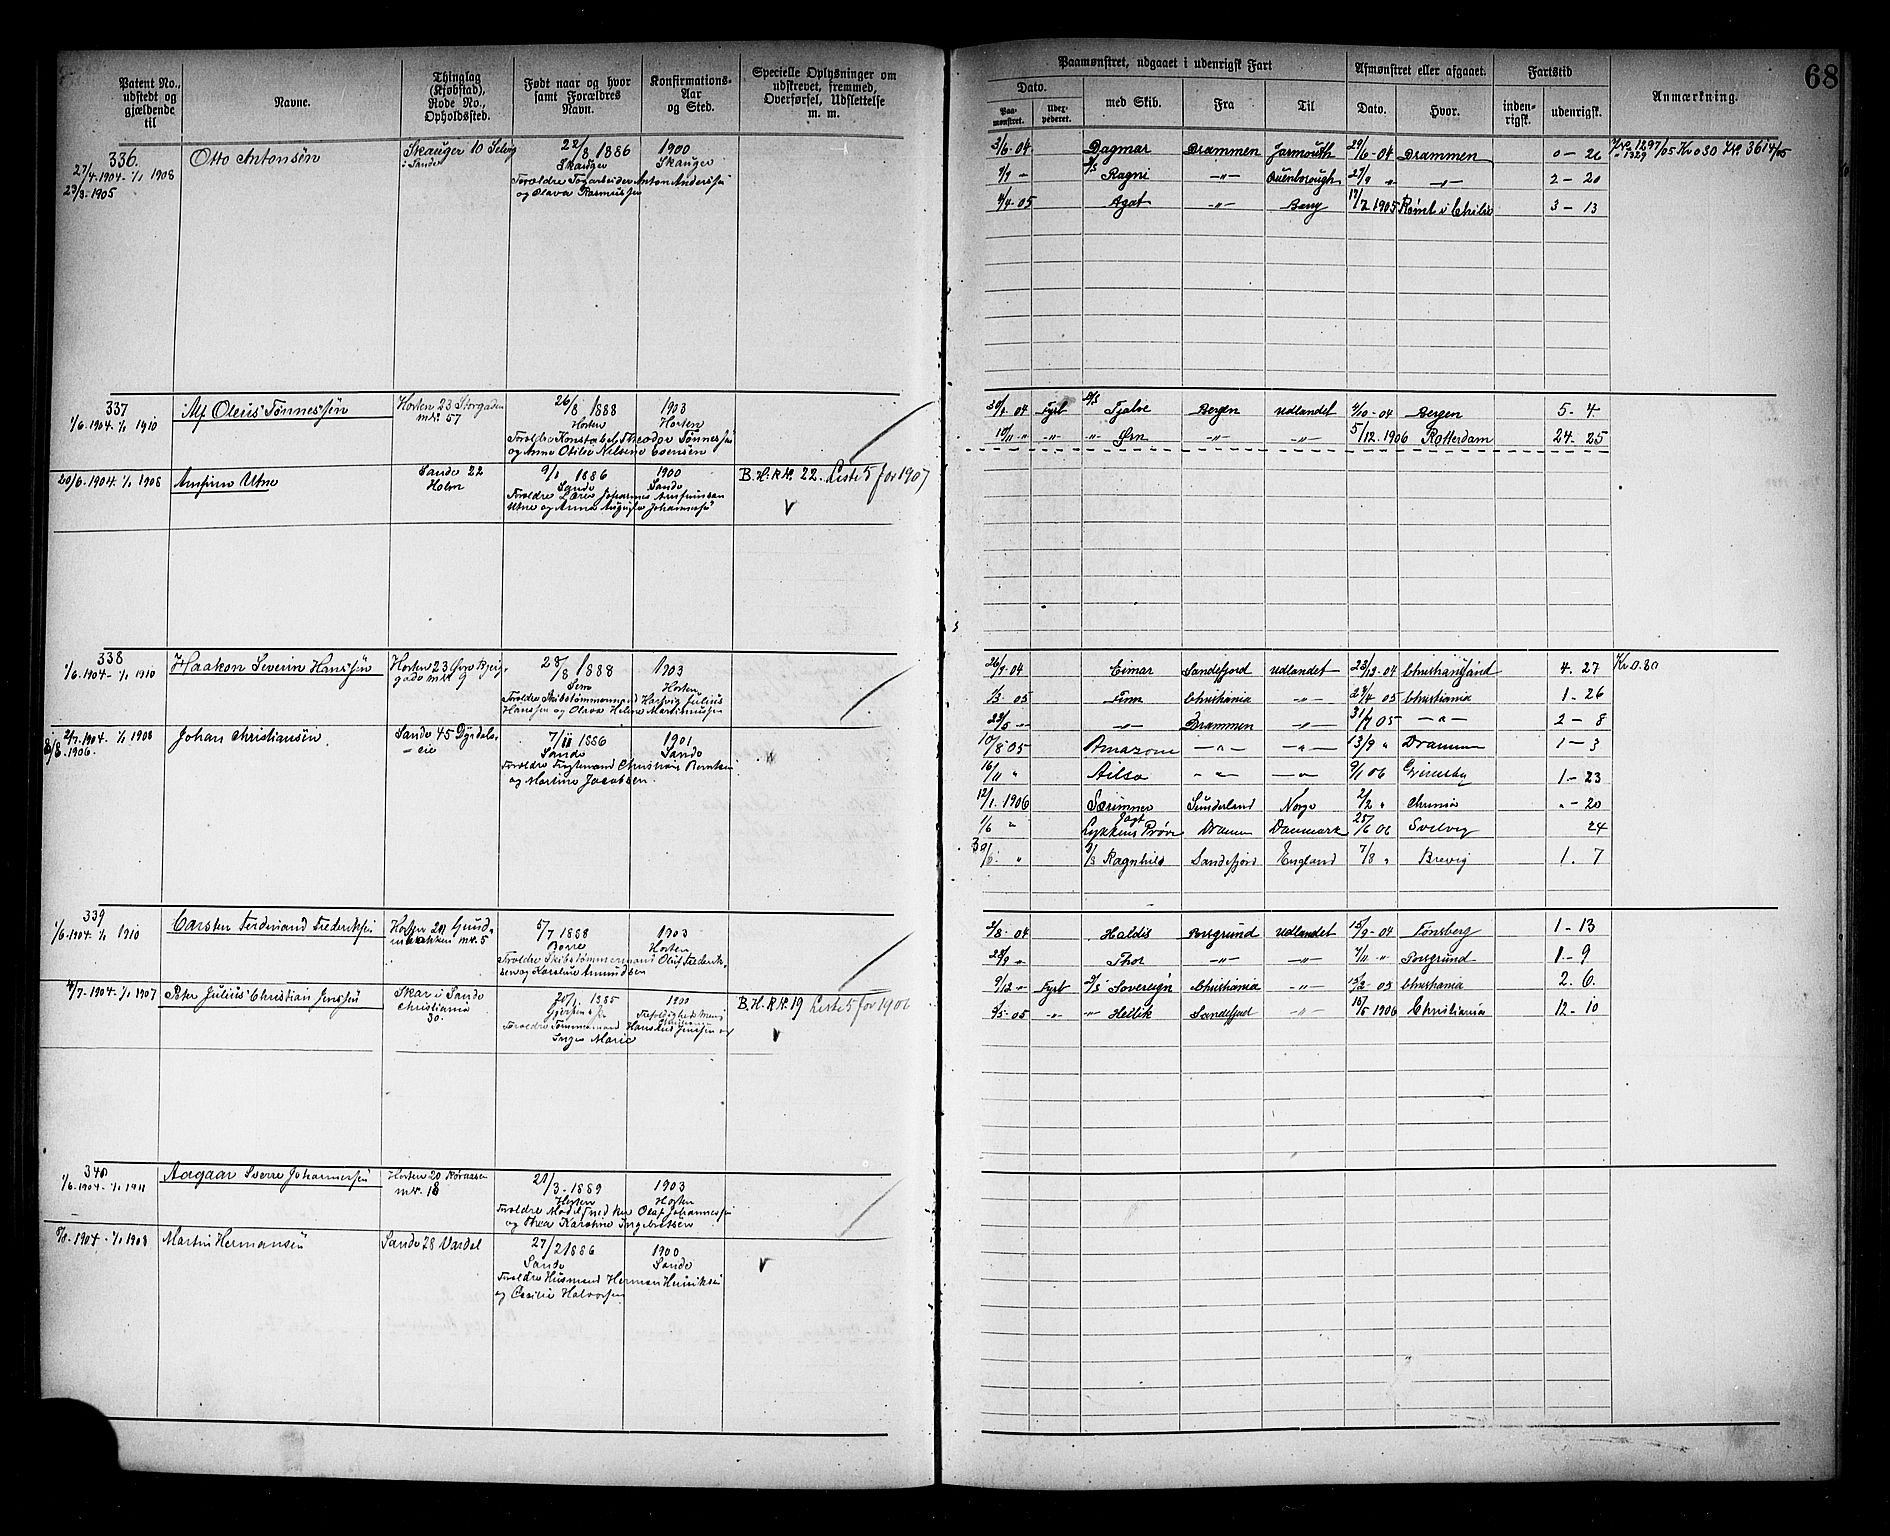 Patent No., udstedt og gjældende til
Navne.
Thinglag (Kjøbstad), Rode No., Opholdssted.
Født naar og hvor samt Forældres Navn.
Konfirmations-Aar og Sted.
Specielle Oplysninger om udskrevet, fremmed, Overførsel, Udslettelse m. m.
336.
27/4-1904- 1/1 1908 Otto Antonsen Skauger 10 Selvig i Sande 22/8 1886 1900
23/3-1905 Skauger Skauger
Forældre Togarbeider Anton Anderssen
og Olava Rasmussen
337
1/6-1904- 1/1 1910 Alf Oleus Tønnessen Horten 23 Storgaden mk. 57 26/8 1888 1903
Horten Horten
Forældre Konstabel Theodor Tønnessen
og Anne Otilie Nilsine Evensen
20/6-1904- 1/1 1908 Arnfinn Utne Sande 22 Holm 9/1 1886 1900 B.H.R.N. 22. Liste 5 for 1907
Sande Sande
Forældre Lærer Johannes Arnfinnsen
Utne og Anna Augusta Johannessen V
338
1/6-1904- 1/1 1910 Haakon Severin Hanssen Horten 23 Øvre 28/8 1888 1903
Sem Horten
Forældre Skibstømmermand Hartvig Julius
Hanssen og Olava Helene Martinussen
2/7-1904- 1/1 1908 Johan Christiansen Sande 45 Dyrdalseie 7/11 1886 1901
8/8-1906. Sande Sande
Christian Berntsen
og Martine Jacobsen.
339
1/6-1904- 1/1 1910 Carsten Ferdinand Frederiksen Horten 5/7 1888 1903
Borre Horten
Forældre Skibstømmermand Oluf Frederik-
sen og Karoline Amundsen
4/7-1904- 1/1 1907 Peter Julius Christian Jenssen Skar i Sande Christiania 30. 1885 1900 B.H.R.N. 19 Liste 5 for 1906
Forældre Tømmermand
Inger Marie V
340
1/6-1904- 1/1 1911 Aagaar Sverre Johannessen Horten 20 mk. 18 21/3-1889 1903
Horten Horten
Olaf Johannessen
og Thea Karoline Ingebretsen
1904- 1/1 1908 Martin Hermansen Sande 28 Vardal 27/2 1886 1900
Sande Sande V
Forældre Husmand Herman Henriksen
og Cecilie Halvorsen
68
Paamønstret, udgaaet i udenrigsk Fart
Afmønstret eller afgaaet.
Fartstid
Anmærkning.
Dato. Paamønstret. Udexpederet. med Skib. Fra Til Dato. Hvor. indenrigsk. udenrigsk.
3/6-04 Dagmar Drammen Jarmouth 29/6-04 Drammen 0 - 26 Kr 0 80
9/7 - D/S Ragni -"- Quenborough 29/9 " -"- 2 - 20
4/4-05 Agat -"- Barry 17/7 1905 Rømt i Chile 3 - 13
04 Fyrb D/S Tjalve Bergen Udlandet 4/10-04 Bergen 5 - 4.
10/11 - " -"- " Ørn -"- -"- 5/12 1906 Rotterdam 24 - 25
26/7 04 Eimar Sandefjord Udlandet 23/12-04 Christianssand 4. 27 Kr 0.80
1/3 05 Finn Christiania -"- 27/4 05 Christiania 1 - 26
23/5 - -"- Drammen -"- 31/7 05 -"- 2 - 8
10/8 05 Amazone -"- -"- 13/9 " Drammen 1 - 3
16/11 " Ailsa -"- -"- 9/1 06 Grimsby 1 - 23
12/1 1906 Særimner Sunderland Norge 2/2 " " - 20
1/6 " Jagt Lykkens Prøve Drammen Danmark 25/6 06 Svelvig 24
30/6 " D/S Ragnhild Sandefjord England 7/8 " Brevig 1. 7
2/8-04 Haldis Porsgrund Udlandet 15/9-04 Tønsberg 1 - 13
28/9 " Thor -"- -"- 7/11 " Porsgrund 1 - 9
9/12 - Fyrb D/S Sovereign Christiania -"- 15/2-05 Christiania 2. 6.
5/5-05 -"- " Hellik Sandefjord -"- 15/5 1906 Christiania 12 - 10